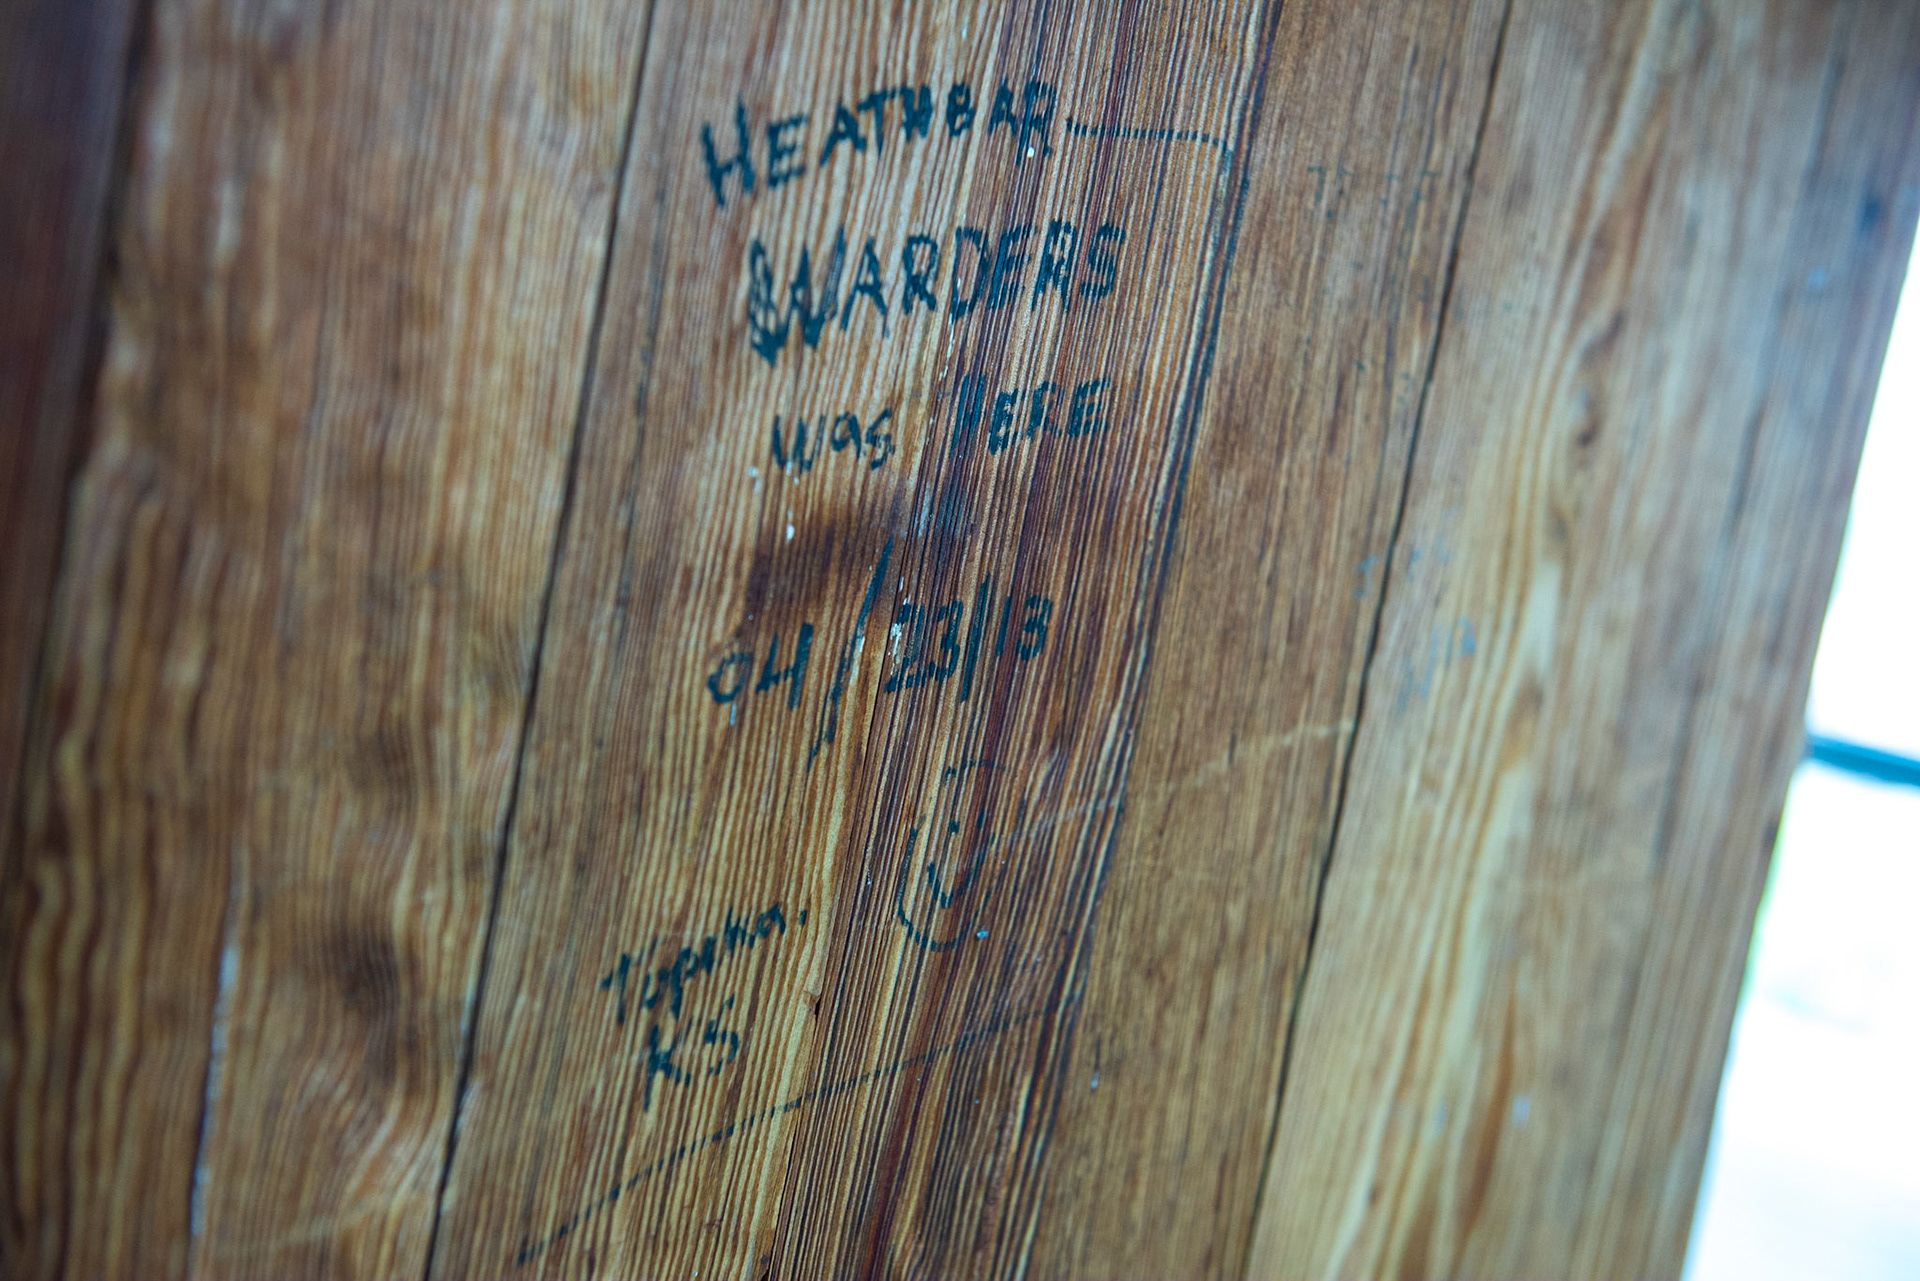 HEATHBAR
WARDERS
was HERE
04/23/13
Topeka,
KS